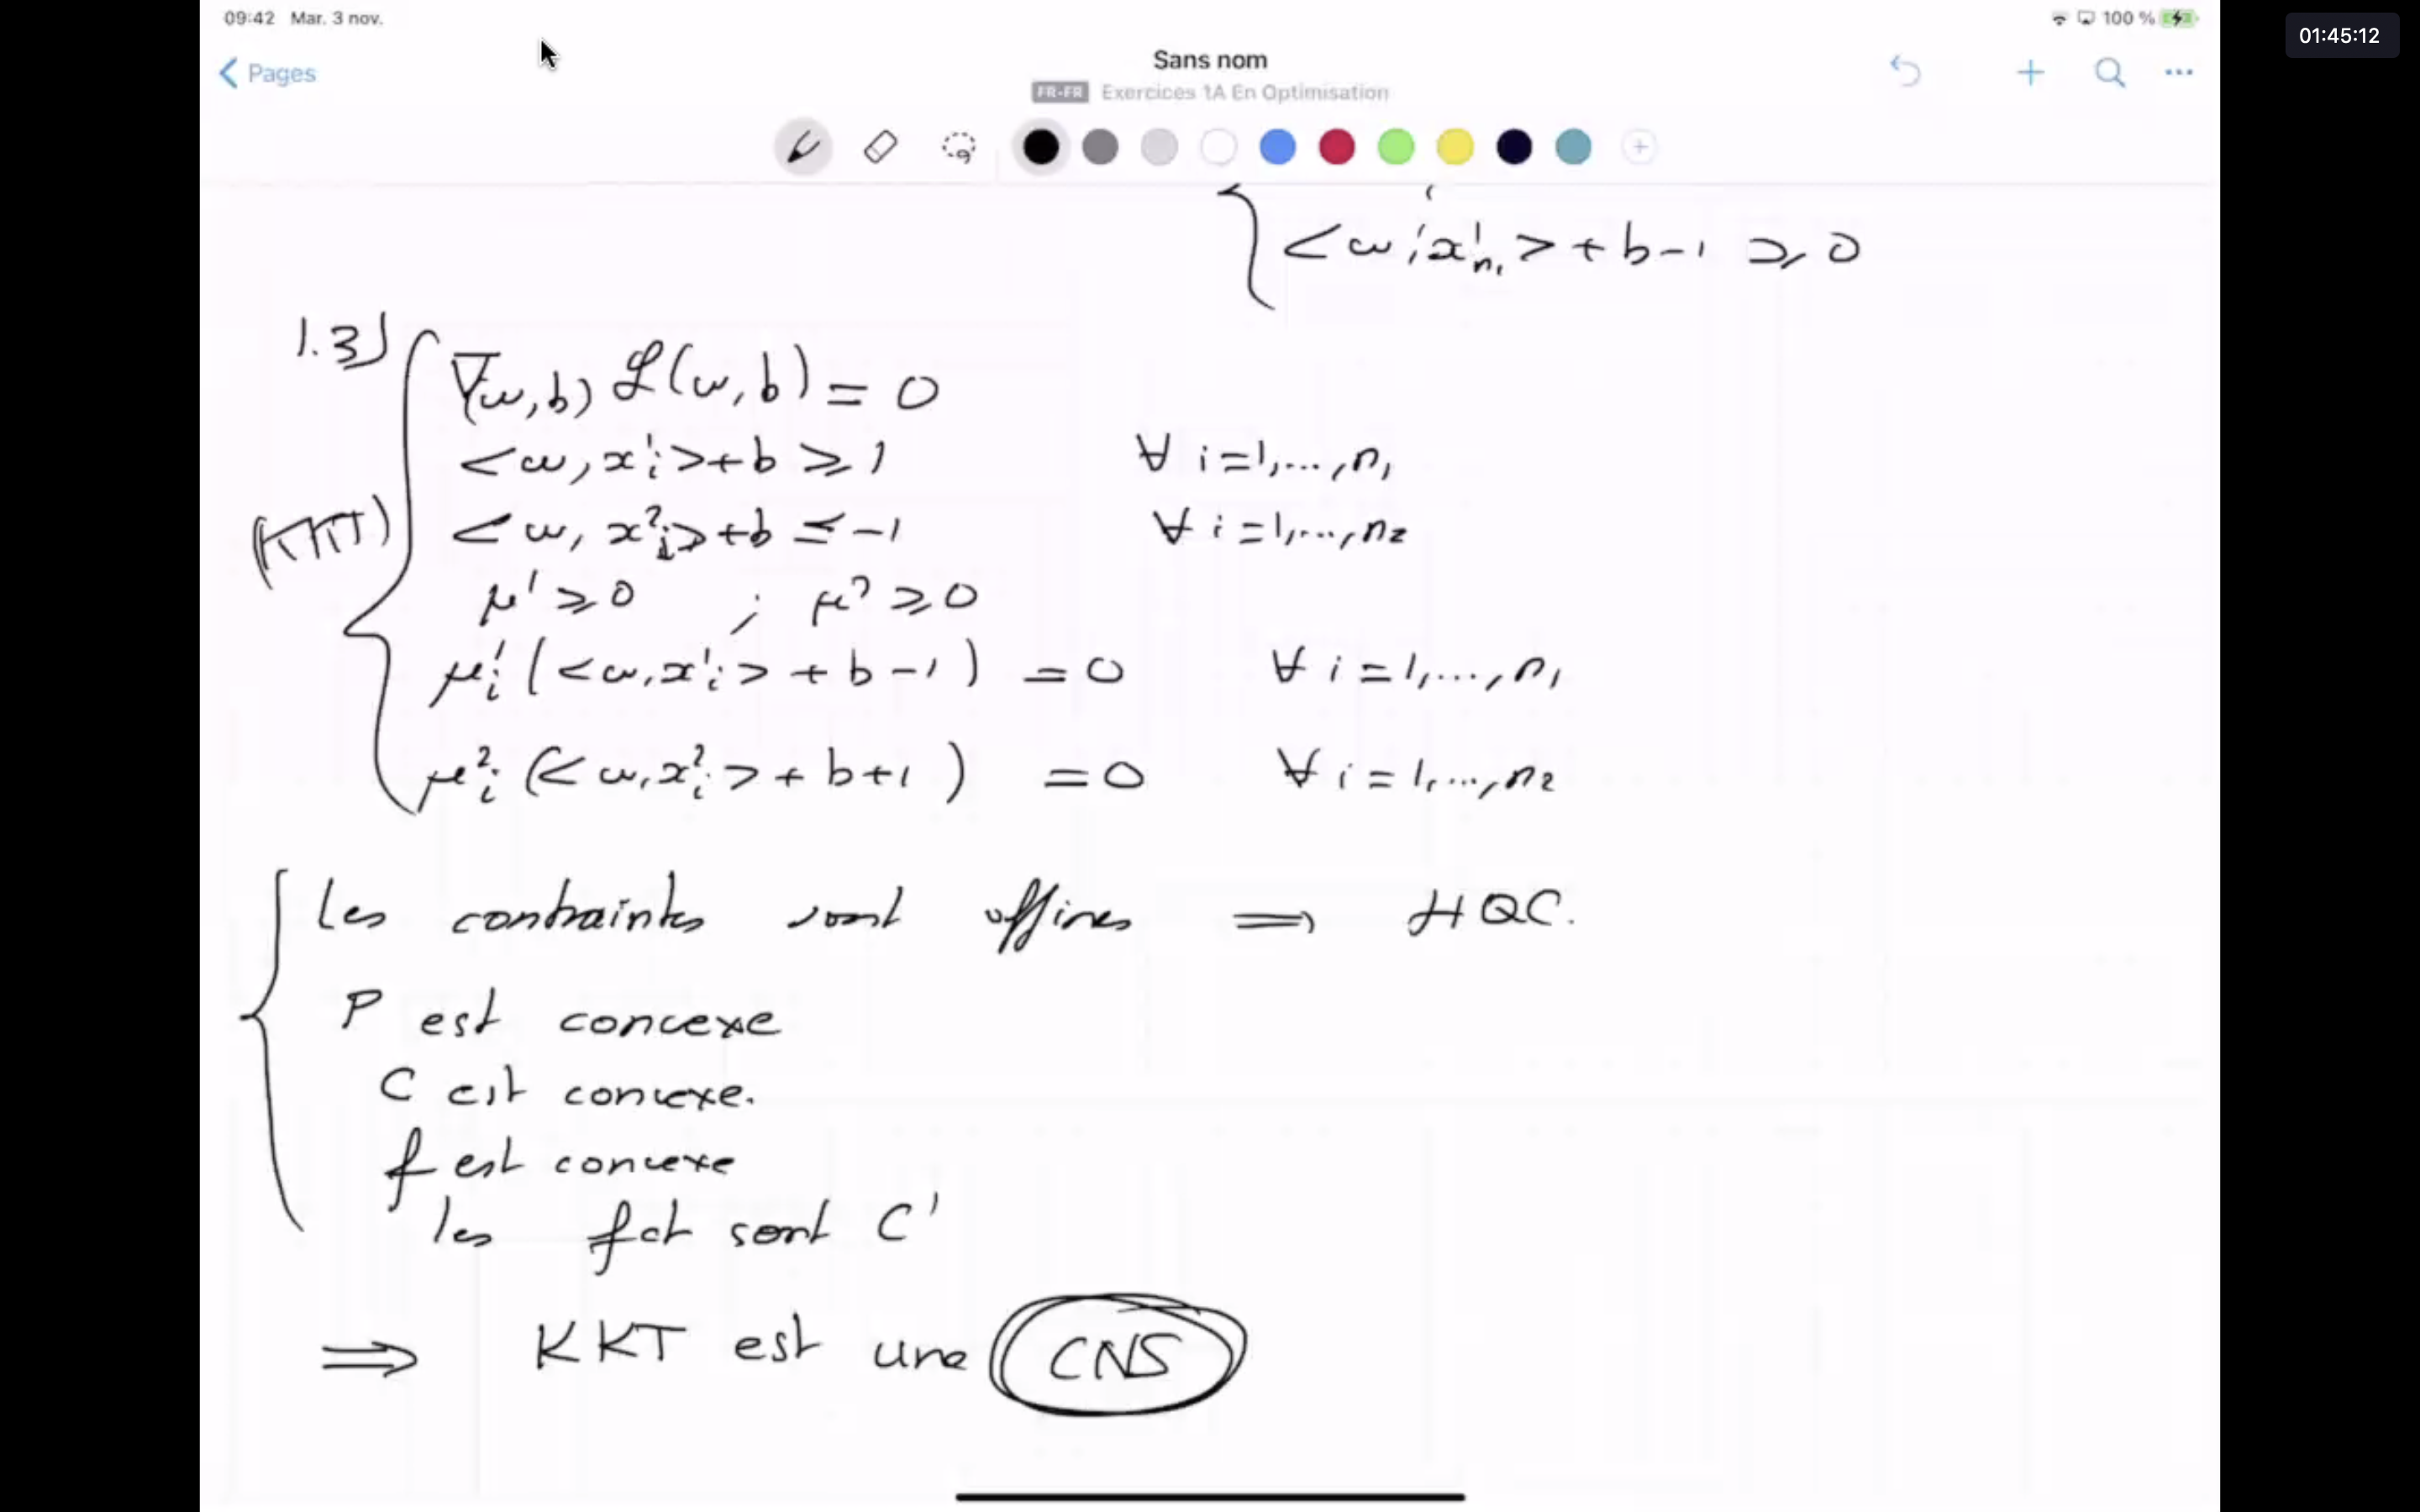 09:42 Mar. 3 nov.
100 %
01:45:12
Pages
Sans nom
FR-FR Exercices 1A En Optimisation
<w, x¹ₙ₁> + b - 1 ⩾ 0
1.3)
∇(w,b) ℒ(w,b) = 0
<w, x¹ᵢ> + b ⩾ 1 ∀ i=1,...,n₁
(KKT)
<w, x²ᵢ> + b ≤ -1 ∀ i=1,...,n₂
μ¹ ⩾ 0 ; μ² ⩾ 0
μ¹ᵢ (<w, x¹ᵢ> + b - 1) = 0 ∀ i=1,...,n₁
μ²ᵢ (<w, x²ᵢ> + b + 1) = 0 ∀ i=1,...,n₂
Les contraintes sont affines ⟹ HQC.
P est convexe
C est convexe.
f est convexe
les fct sont C¹
⟹ KKT est une CNS